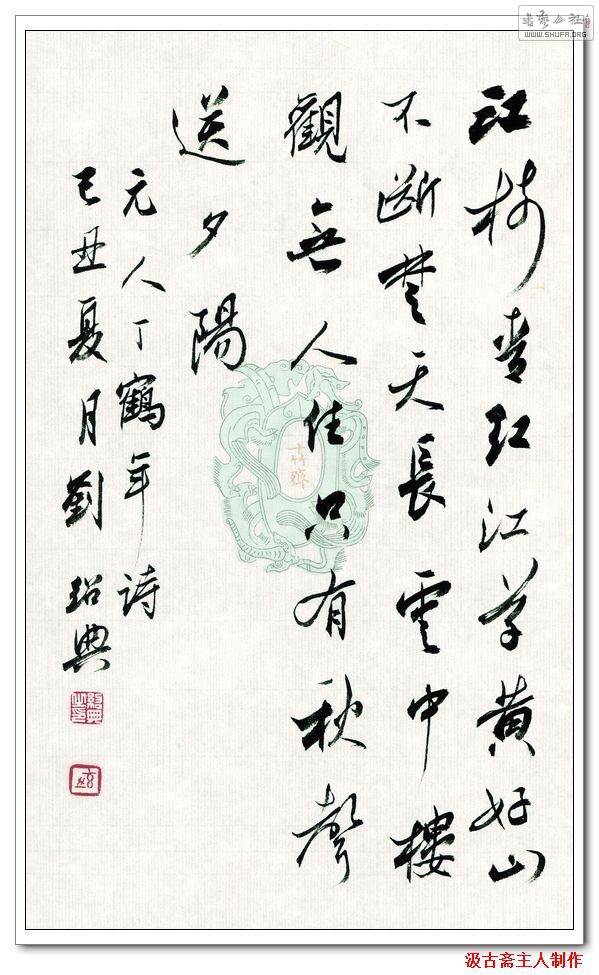 江树青红江草黄好山
不斷楚天長雲中樓
觀無人住只有秋聲
送夕陽
元人丁鶴年詩
己丑夏月劉紹典
十竹齋
书艺公社
WWW.SHUFA.ORG
汲古斋主人制作